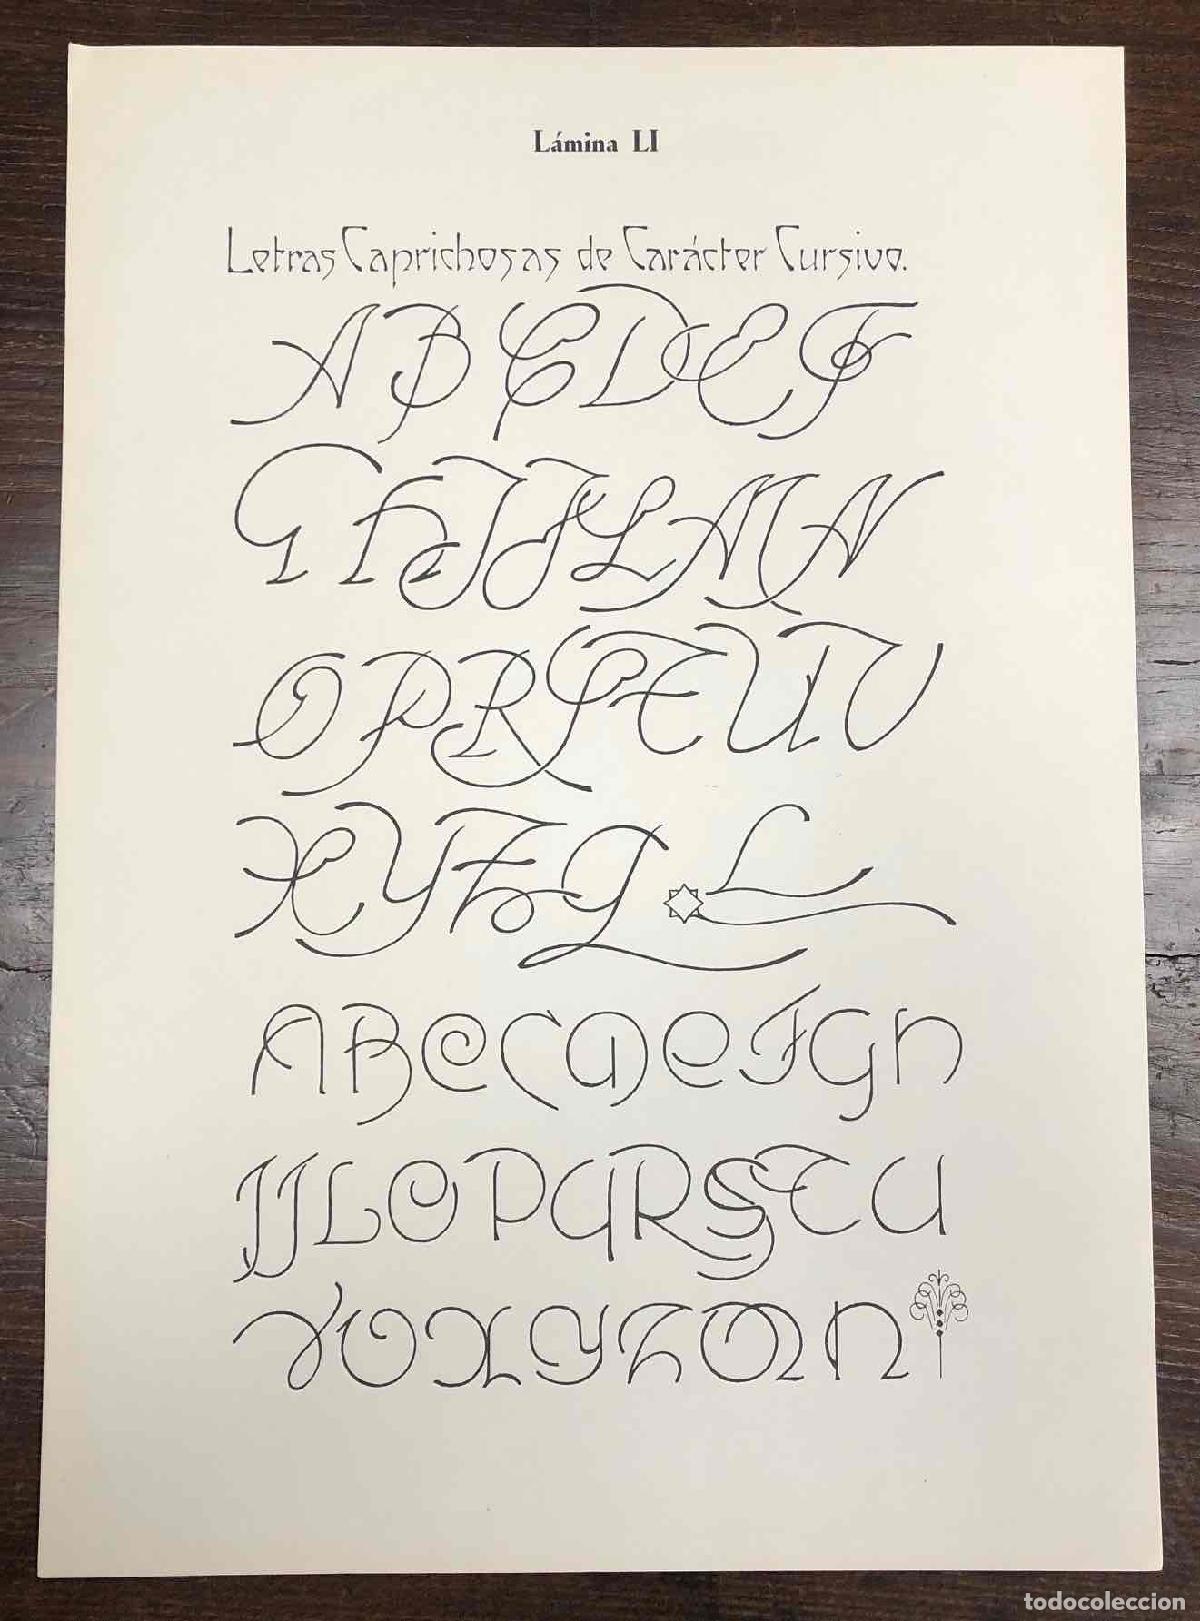 Lámina LI
Letras Caprichosas de Carácter Cursivo.
A B C D E F
G H I J L M N
O P R S T U V
X Y Z Q L
A B C Ç D E F G H
I J L O P Q R S T U
V O X Y Z M N
todocoleccion